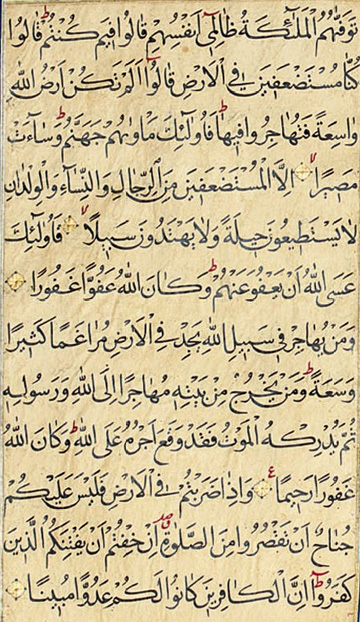 تَوَفّٰىهُمُ الْمَلٰٓئِكَةُ ظَالِمٖٓى اَنْفُسِهِمْ قَالُوا فٖيمَ كُنْتُمْ قَالُوا
كُنَّا مُسْتَضْعَفٖينَ فِى الْاَرْضِ قَالُوٓا اَلَمْ تَكُنْ اَرْضُ اللّٰهِ
وَاسِعَةً فَتُهَاجِرُوا فٖيهَا فَاُولٰٓئِكَ مَاْوٰىهُمْ جَهَنَّمُ وَسَآءَتْ
مَصٖيرًا اِلَّا الْمُسْتَضْعَفٖينَ مِنَ الرِّجَالِ وَالنِّسَآءِ وَالْوِلْدَانِ
لَا يَسْتَطٖيعُونَ حٖيلَةً وَلَا يَهْتَدُونَ سَبٖيلًا فَاُولٰٓئِكَ
عَسَى اللّٰهُ اَنْ يَعْفُوَ عَنْهُمْ وَكَانَ اللّٰهُ عَفُوًّا غَفُورًا
وَمَنْ يُهَاجِرْ فٖى سَبٖيلِ اللّٰهِ يَجِدْ فِى الْاَرْضِ مُرَاغَمًا كَثٖيرًا
وَسَعَةً وَمَنْ يَخْرُجْ مِنْ بَيْتِهٖ مُهَاجِرًا اِلَى اللّٰهِ وَرَسُولِهٖ
ثُمَّ يُدْرِكْهُ الْمَوْتُ فَقَدْ وَقَعَ اَجْرُهُ عَلَى اللّٰهِ وَكَانَ اللّٰهُ
غَفُورًا رَحٖيمًا وَاِذَا ضَرَبْتُمْ فِى الْاَرْضِ فَلَيْسَ عَلَيْكُمْ
جُنَاحٌ اَنْ تَقْصُرُوا مِنَ الصَّلٰوةِ اِنْ خِفْتُمْ اَنْ يَفْتِنَكُمُ الَّذٖينَ
كَفَرُوا اِنَّ الْكَافِرٖينَ كَانُوا لَكُمْ عَدُوًّا مُبٖينًا